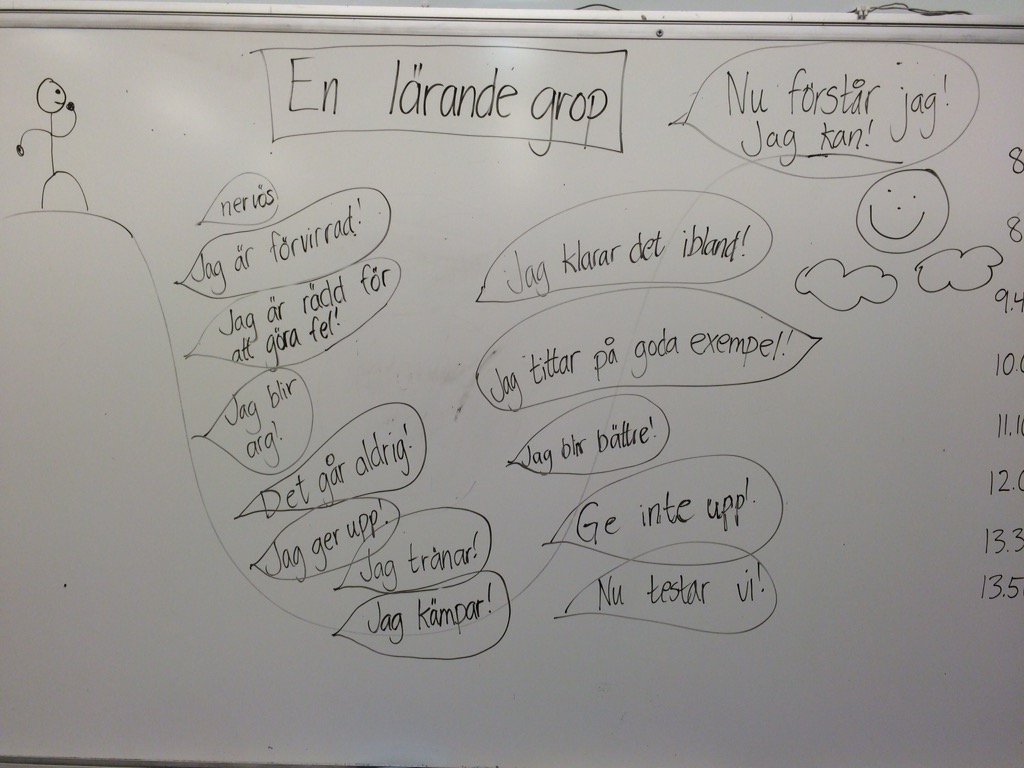 En lärande grop
Nu förstår jag!
Jag kan!
nervös
Jag är förvirrad!
Jag är rädd för
att göra fel!
Jag blir
arg!
Det går aldrig!
Jag ger upp!
Jag tränar!
Jag kämpar!
Jag klarar det ibland!
Jag tittar på goda exempel!
Jag blir bättre!
Ge inte upp!
Nu testar vi!
8
8
9.4
10.0
11.10
12.0
13.3
13.5